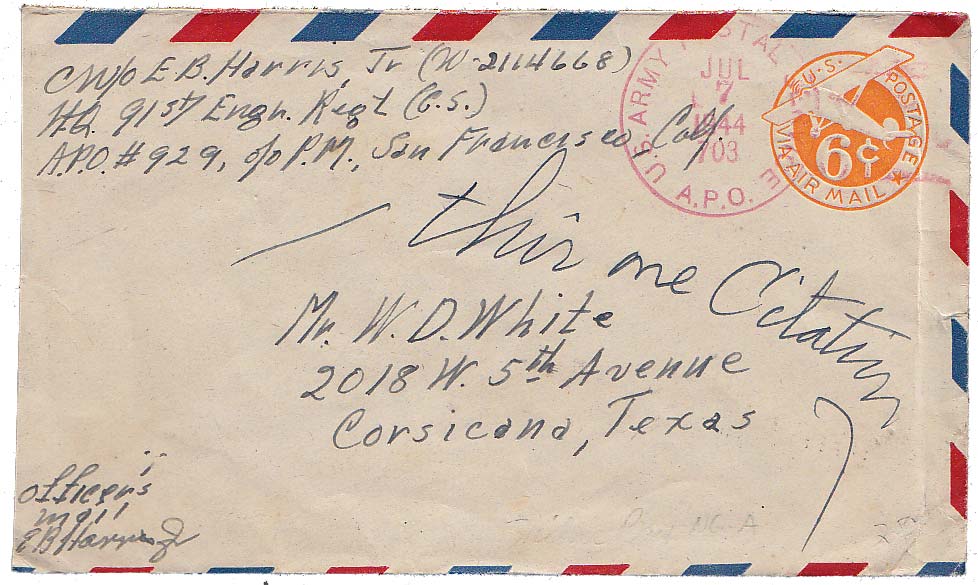 CWO E. B. Harris, Jr (W-2114668)
Hq. 91st Engn. Regt (G.S.)
A.P.O. # 929, c/o P.M., San Francisco, Calif.
U.S. ARMY POSTAL
JUL
7
1944
703
A.P.O.
U.S. POSTAGE
6¢
VIA AIR MAIL
this one Citation
Mr. W. D. White
2018 W. 5th Avenue
Corsicana, Texas
Officer's
mail
E B Harris Jr